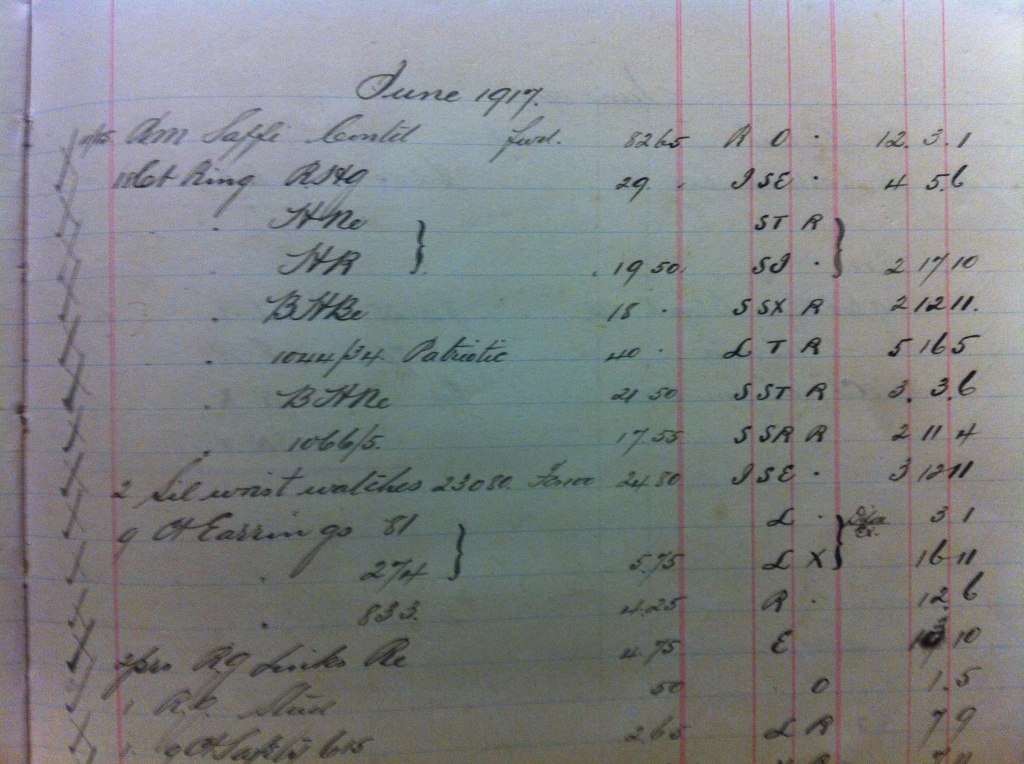 June 1917.
Am Saffi Contd fwd. 8265 R O . 12. 3. 1
18 Ct Ring RSHG 29. . I SE . 4 5.6
. HNe ST R
HR 19 50. SI . 2 17 10
. BHBe 18 . S SX R 2 12 11.
. 1044/34 Patriotic 40 . L T R 5 16 5
. BHNe 21 50 S ST R 3. 3.6
. 1066/5. 17.55 S SR R 2 11 4
2 Sil wrist watches 23080. 24 80 I SE . 3 12 11
9 Ct Earrings 81 L . 3 1
. 274 5.75 L X 16 11
. 833. 4.25 R . 12.6
2 prs RG Links Re 4.75 E 10
1 R.G. Stud 50 O 1.5
1. 9 Ct 615 2.65 L R 7 9